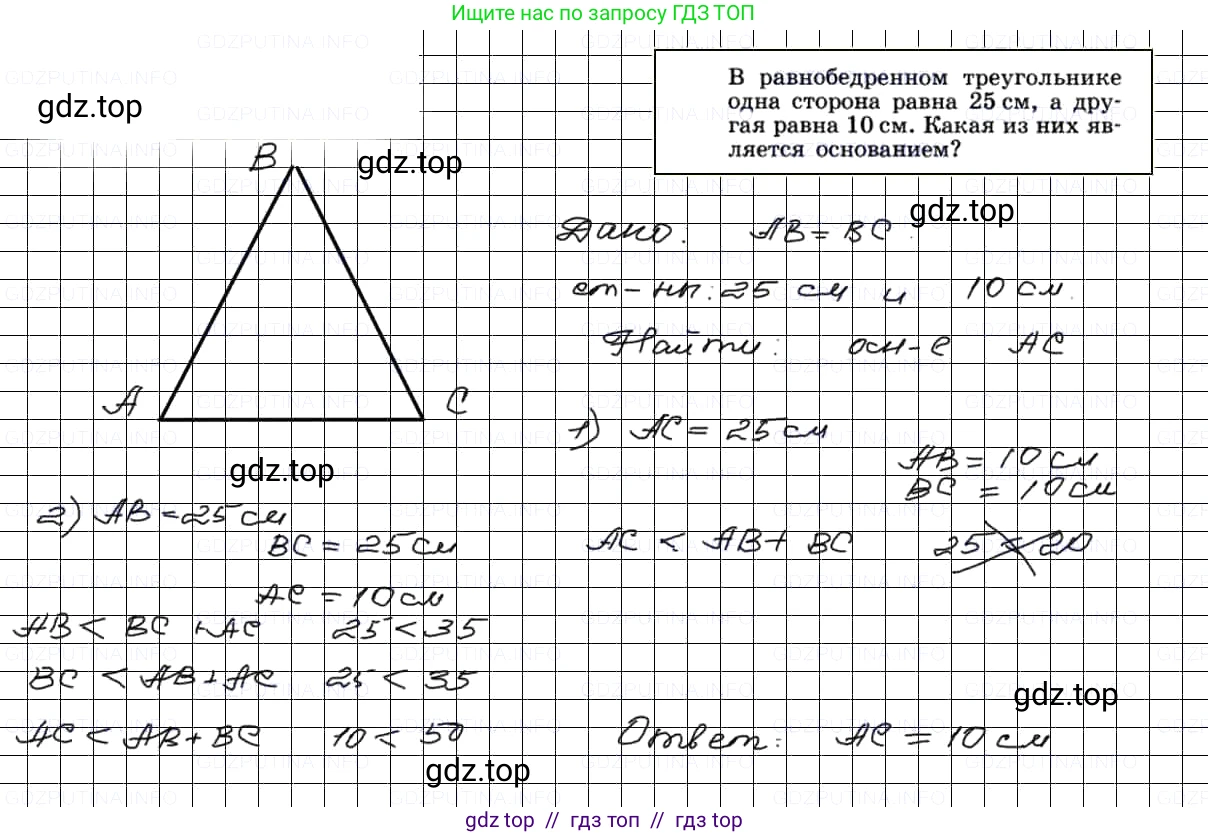 Ищите нас по запросу ГДЗ ТОП
В равнобедренном треугольнике
одна сторона равна 25 см, а дру-
гая равна 10 см. Какая из них яв-
ляется основанием?
gdz.top
B
gdz.top
gdz.top
Дано: AB = BC
ст-ны: 25 см и 10 см.
Найти: осн-е AC
A
C
1) AC = 25 см
AB = 10 см
BC = 10 см
AC < AB + BC 25 < 20
gdz.top
2) AB = 25 см
BC = 25 см
AC = 10 см
AB < BC + AC 25 < 35
BC < AB + AC 25 < 35
AC < AB + BC 10 < 50
gdz.top
Ответ: AC = 10 см
gdz.top
gdz топ // гдз топ // гдз top
GDZPUTINA.INFO